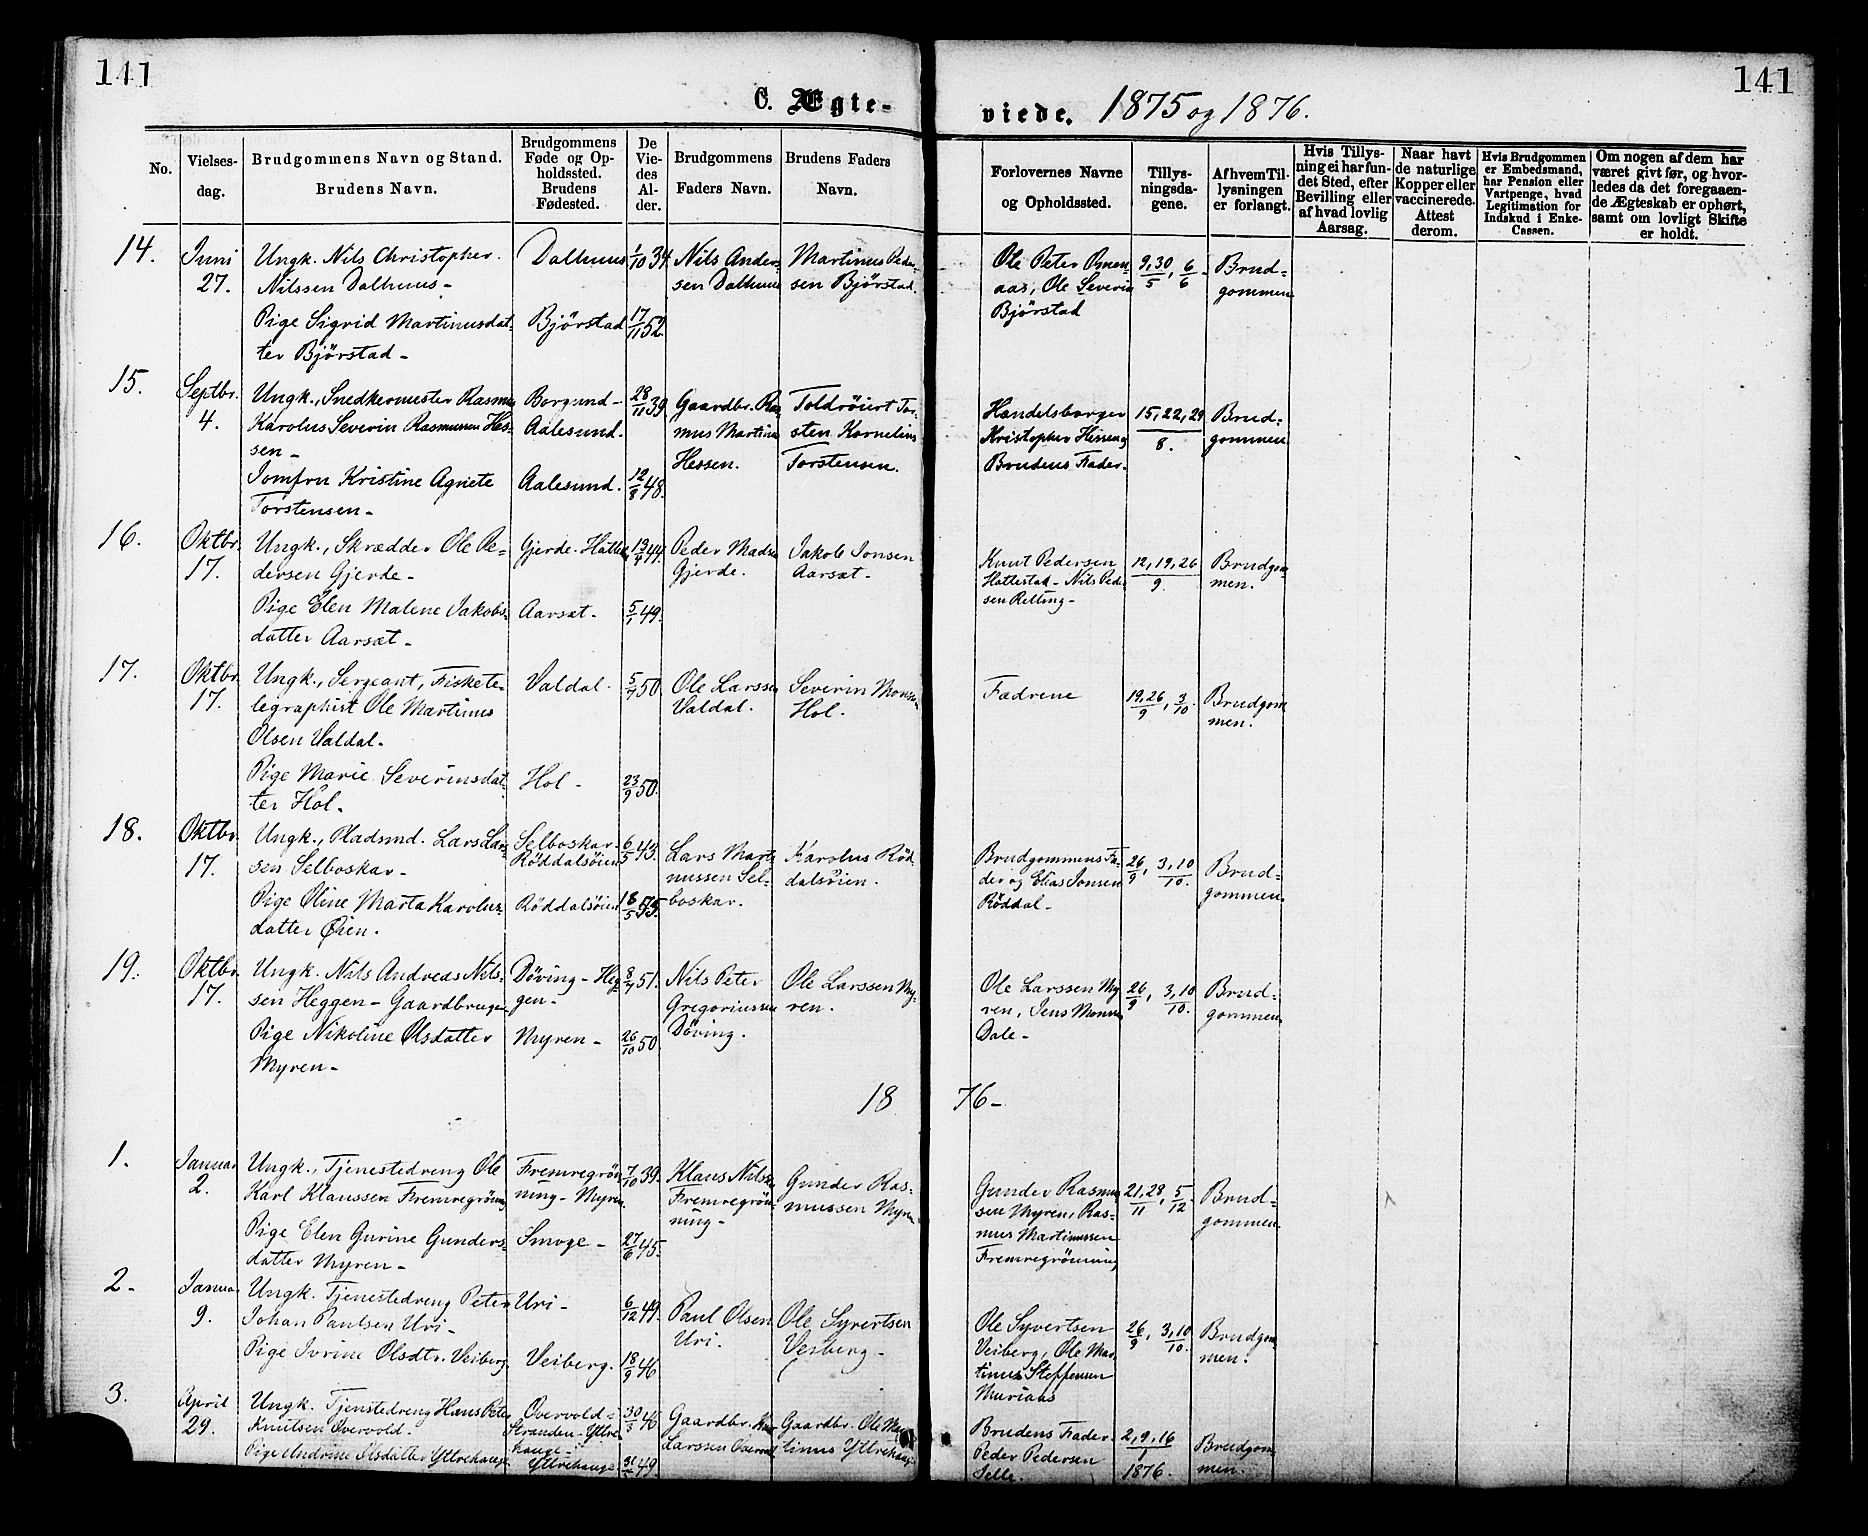 141
141
C. Ægte-
viede. 1875 og 1876.
No.
Vielses-
dag.
Brudgommens Navn og Stand.
Brudens Navn.
Brudgommens
Føde og Op-
holdssted.
Brudens
Fødested.
De
Vie-
des
Al-
der.
Brudgommens
Faders Navn.
Brudens Faders
Navn.
Forlovernes Navne
og Opholdssted.
Tillys-
ningsda-
gene.
Af hvem Til-
lysningen
er forlangt.
Hvis Tillys-
ning ei har fun-
det Sted, efter
Bevilling eller
af hvad lovlig
Aarsag.
Naar havt
de naturlige
Kopper eller
vaccinerede.
Attest
derom.
Hvis Brudgommen
er Embedsmand,
har Pension eller
Vartpenge, hvad
Legitimation for
Indskud i Enke-
Cassen.
Om nogen af dem har
været givt før, og hvor-
ledes da det foregaaen-
de Ægteskab er ophørt,
samt om lovligt Skifte
er holdt.
14.
Juni
27.
Ungk. Nils Christopher
Nilssen Dalhuus-
Pige Sigrid Martinusdat-
ter Bjørstad-
Dalhuus
Bjørstad
1/10 34.
17/11 52.
Nils Ander-
sen Dalhuus
Martinus Peder-
sen Bjørstad.
Ole Peter
aas, Ole Severin
Bjørstad
9, 30/5, 6/6
Brud-
gommen
15.
Septbr.
4.
Ungk., Snedkermester Rasmus
Karolus Severin Rasmussen Hes-
sen-
Jomfru Kristine Agnete
Torstensen-
Borgund-
Aalesund.
Aalesund.
28/11 39
12/8 48.
Gaardbr. Ras-
mus Martinus
Hessen.
Toldröiert Tor-
sten Kornelius
Torstensen.
Handelsborger
Kristopher
Brudens Fader.
15, 22, 29
8.
Brud-
gommen
16.
Oktbr.
17.
Ungk., Skrædder Ole Pe-
dersen Gjerde-
Pige Elen Malene Jakobs-
datter Aarsæt-
Gjerde-
Aarsæt-
13/4 44.
5/1 49.
Peder Madsen
Gjerde.
Jakob Jonsen
Aarsæt-
Knut Pedersen
Hattestad- Nils Peder-
sen Relling-
12, 19, 26
9.
Brudgom-
men.
17.
Oktbr.
17.
Ungk., Sergeant, Fiskete-
legraphist Ole Martinus
Olsen Valdal-
Pige Marie Severinsdat-
ter Hol-
Valdal-
Hol-
5/7 50.
23/9 50.
Ole Larssen
Valdal.
Severin Monsen
Hol.
Fædrene
19, 26/9, 3/10.
Brudgom-
men.
18.
Oktbr.
17.
Ungk., Pladsmd. Lars Lars-
sen Selboskar-
Pige Oline Marta Karolus-
datter Øien.
Selboskar-
Röddalsöien
Röddalsöien
6/5 43.
18/5 53.
Lars Marti-
nussen Sel-
boskar.
Karolus Röd-
dalsöien.
Brudgommens Fa-
der og Elias Jonsen
Röddal-
26/9, 3, 10/10.
Brud-
gommen
19.
Oktbr.
17.
Ungk. Nils Andreas Nils-
sen Heggen- Gaardbruger
Pige Nikoline Olsdatter
Myren-
Döving- Heg-
gen-
Myren-
8/7 51.
26/10 50.
Nils Peter
Gregoriussen
Döving.
Ole Larssen My-
ren.
Ole Larssen My-
ren, Jens Monsen
Dale-
26/9, 3, 10/10.
Brud-
gommen
18 76-
1.
Januar
2.
Ungk., Tjenestedreng Ole
Karl Klaussen Fremregröning
Pige Elen Gurine Gunders-
datter Myren-
Fremregrön-
ning- Myren
Smoge-
7/10 39.
27/6 45.
Klaus Nilssen
Fremregrön-
ning-
Gunder Ras-
mussen Myren
Gunder Rasmus-
sen Myren, Ras-
mus Martinussen
Fremregrönning
21, 28/11, 5/12.
Brud-
gommen.
2.
Januar
9.
Ungk. Tjenestedreng Peter
Johan Paulsen Uri-
Pige Ivrine Olsdtr. Veiberg
Uri-
Veiberg.
6/12 49.
18/9 46
Paul Olsen
Uri.
Ole Syvertsen
Veiberg-
Ole Syvertsen
Veiberg, Ole Mar-
tinus Steffensen
Muriaas
26/9, 3, 10/10.
Brudgom-
men.
3.
April
29.
Ungk. Tjenestedreng Hans Peter
Knutsen Overvold-
Pige Andrine Olsdatter Yttrehauge
Overvold-
Stranden- Yttre-
hauge-
Yttrehauge
30/3 46
49
Gaardbr. Knut
Larssen Overvold
Gaardbr. Ole Mar-
tinus Yttrehauge
Brudens Fader-
Peder Pedersen
Selle.
2, 9, 16
1
1876.
Brudgom-
men.